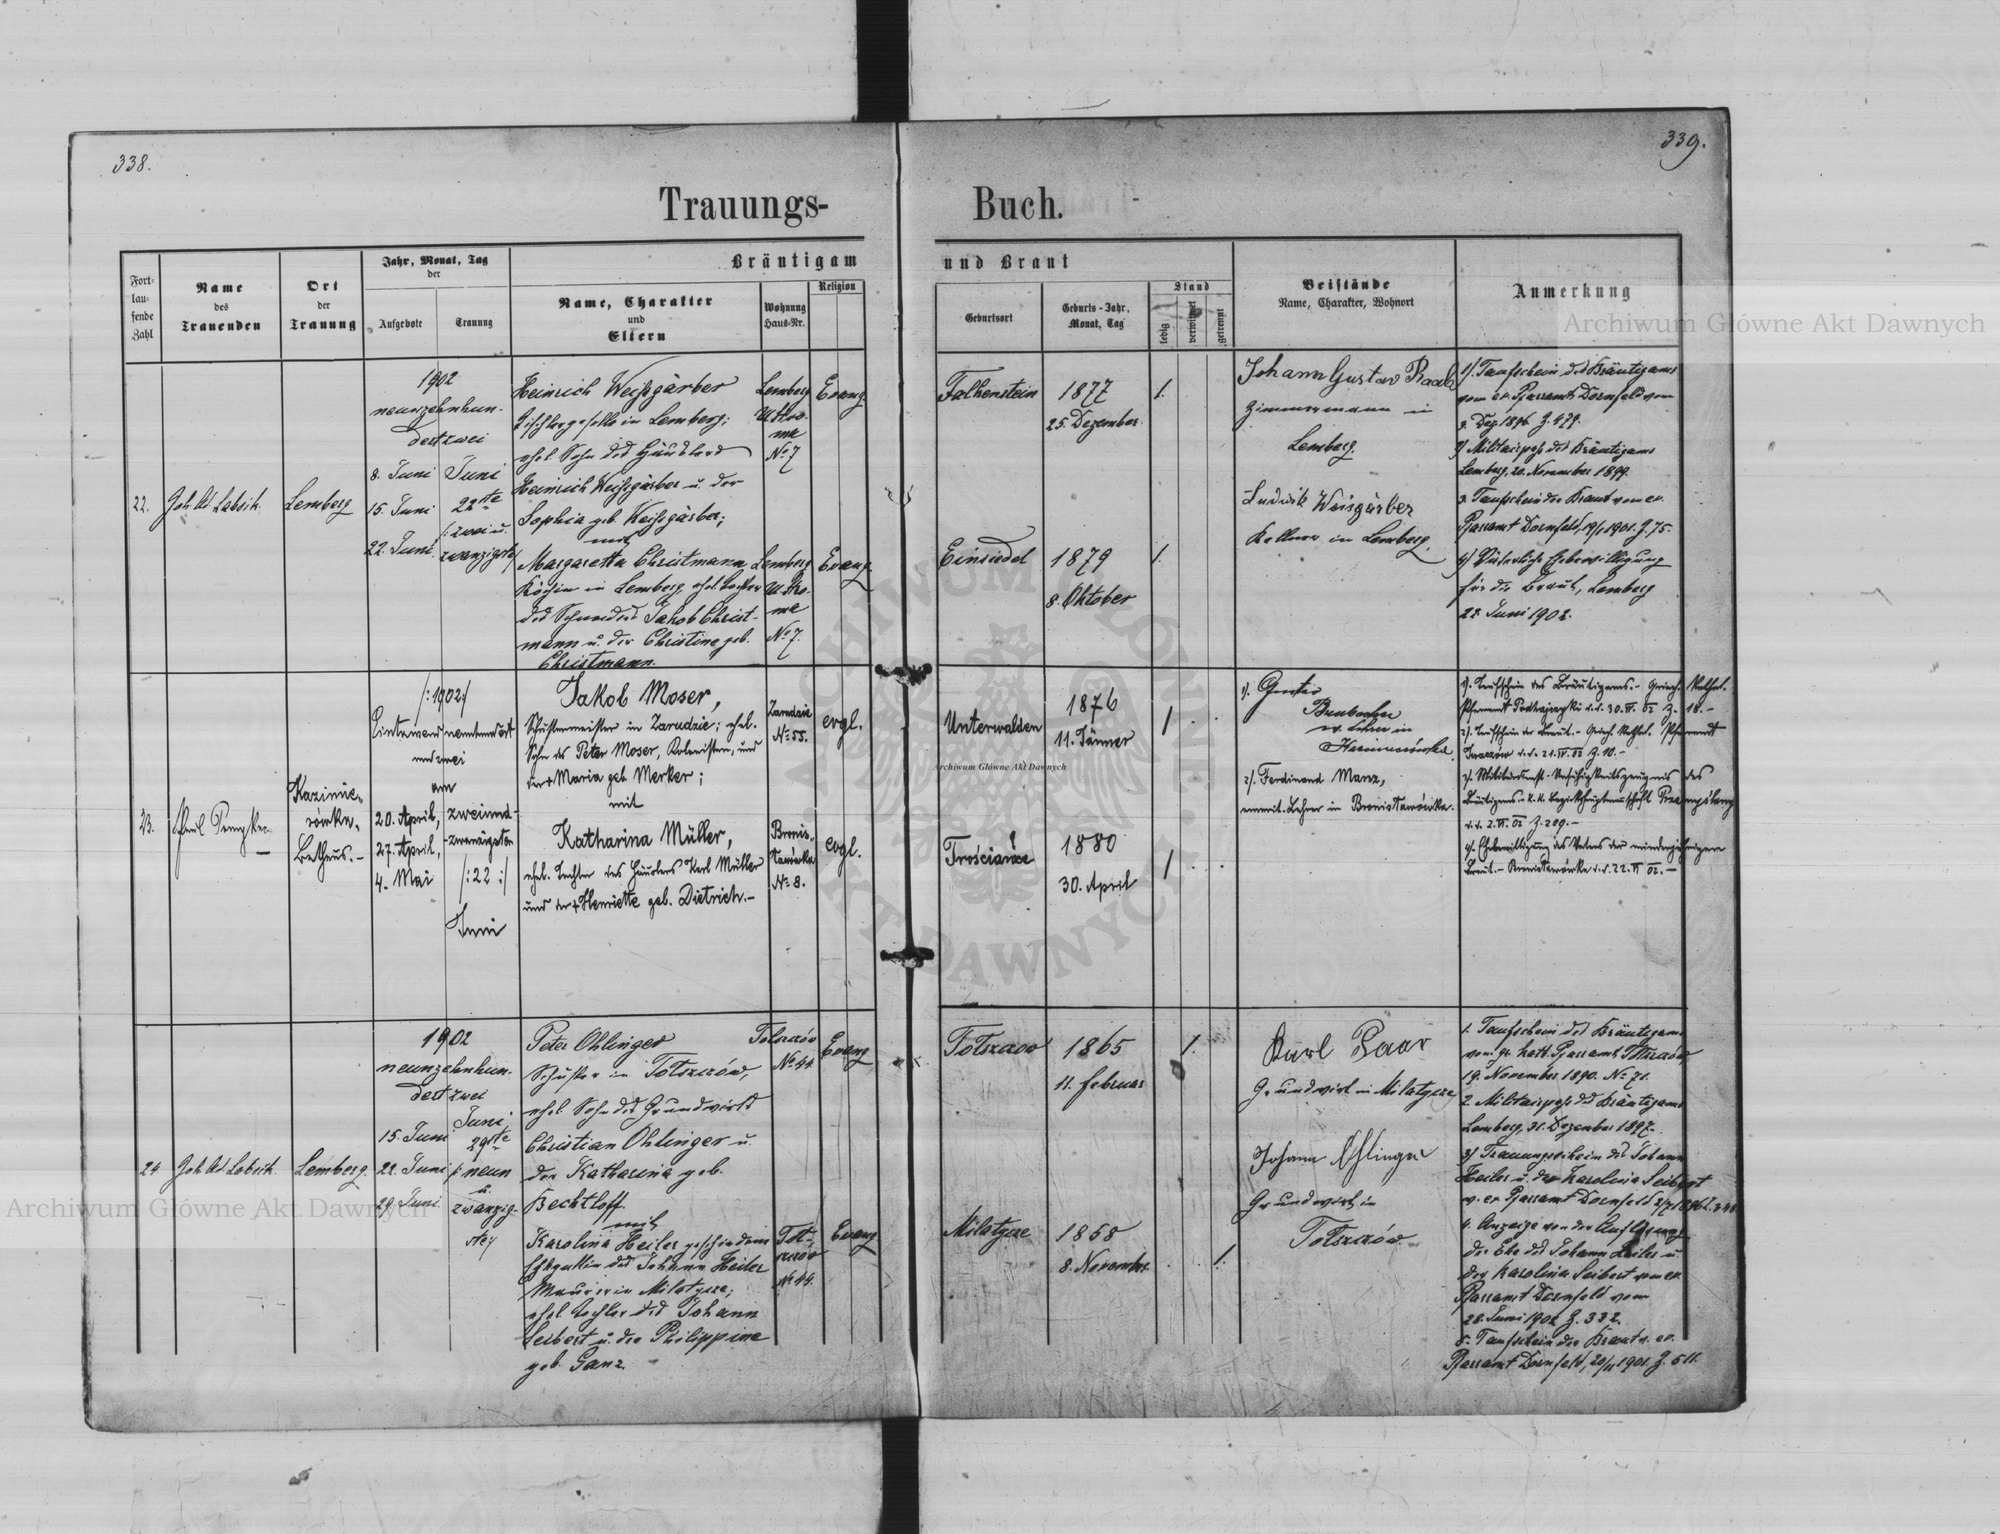 338.
339.
Trauungs-
Buch.
Fort-
lau-
fende
Zahl
Name
des
Trauenden
Ort
der
Trauung
Jahr, Monat, Tag
der
Aufgebote
Trauung
Bräutigam
Name, Charakter
und
Eltern
Wohnung
Haus-Nr.
Religion
und Braut
Geburtsort
Geburts-Jahr,
Monat, Tag
Stand
ledig
verwitwet
getrennt
Beistände
Name, Charakter, Wohnort
Anmerkung
22.
Lemberg
1902
neunzehnhun-
dertzwei
8. Juni
15. Juni
22. Juni
Juni
22ste
/: zwei u.
zwanzigste/
Heinrich Weißgärber
Tischlergeselle in Lemberg;
ehel. Sohn des Häuslers
Heinrich Weißgärber u. der
Sophia geb. Weißgärber;
mit
Margaretta Christmann
Köchin in Lemberg, ehel. Tochter
des Jakob Christ-
mann u. der Christine geb.
Christmann.
Lemberg
No 7
Evang.
Lemberg
No 7.
Evang.
Falkenstein
1877
25. Dezember
1.
Einsiedel
1879
8. Oktober
1.
Johann Gustav
Zimmermann in
Lemberg.
Ludwik Weisgärber
Kellner in Lemberg.
1/. Taufschein des Bräutigams
vom ev. Pfarramt Dornfeld vom
3. Dez 1896. Z. 479.
2/ Militairpass des Bräutigams
Lemberg, 20. November 1899.
3. Taufschein der Braut vom ev.
Pfarramt Dornfeld, 1901. Z. 75.
4/ Väterliche Ehebewilligung
für die Braut, Lemberg
22. Juni 1902.
23.
Kazimie-
rówka,
Bethaus.-
/:1902:/
Eintausendneunhundert
und zwei
am
20. April,
27. April,
4. Mai
zweiund-
zwanzigsten
/:22:/
Juni
Jakob Moser,
Schustermeister in Zarudzie; ehel.
Sohn des Peter Moser, Kolonisten, und
der + Maria geb. Merker;
mit
Katharina Müller,
ehel. Tochter des Häuslers Karl Müller
und der + Henriette geb. Dietrich.-
Zarudzie
No 55.
evgl.
Bronis-
ławówka
No 8.
evgl.
Unterwalden
1876
11. Jänner
1
Trościaniec
1880
30. April
1
1/. Gustav
in
2/. Ferdinand Manz,
emerit. Lehrer in Bronisławówka.
1/. Taufschein des Bräutigams.- Griech. Kathol.
Pfarramt 30. 02 Z. 18.-
2/. Taufschein der Braut.- Griech. Kathol. Pfarramt
02 Z. 10.-
3/. des
Bräutigams.- K.K. Bezirkshauptmannschaft Przemyślany
2. VI. 02 Z. 209.-
4/. Ehebewilligung des Vaters der minderjährigen
Braut.- Bronisławówka 22. VI 02.-
24
Lemberg.
1902
neunzehnhun-
dertzwei
15. Juni
22. Juni
29. Juni
Juni
29ste
/: neun
u.
zwanzig-
ste/
Peter Ohlinger
Schuster in Tołszczów,
ehel. Sohn des Grundwirts
Christian Ohlinger u.
der Katharina geb.
Bechtloff.
mit
Karolina Heiler geschiedene
Ehegattin des Johann Heiler
Maurer in Milatycze;
ehel. Tochter des Johann
Seibert u. der Philippine
geb. Ganz.
Tołszczów
No 44.
Evang.
Toł-
szczów
No 44.
Evang
Tołszczów
1865
11. Februar
1.
Milatycze
1868
8. November
1.
Karl Saar
Grundwirt in Milatycze
Johann Ohlinger
Grundwirt in
Tołszczów
1. Taufschein des Bräutigams
vom gr. kath. Pfarramt Tołszczów,
19. November 1890. No 71.
2. Militairpass des Bräutigams
Lemberg, 31. Dezember 1897.
3/ Trauungsschein des Johann
Heiler u. der Karolina Seibert
v. ev. Pfarramt Dornfeld
4. Anzeige von der Auflösung
der Ehe des Johann Heiler u.
der Karolina Seibert vom ev.
Pfarramt Dornfeld vom
28. Juni 1902 Z. 332.
5. Taufschein der Braut v. ev.
Pfarramt Dornfeld, 1901. Z. 511.
Archiwum Główne Akt Dawnych
Archiwum Główne Akt Dawnych
Archiwum Główne Akt Dawnych
ARCHIWUM GŁÓWNE AKT DAWNYCH